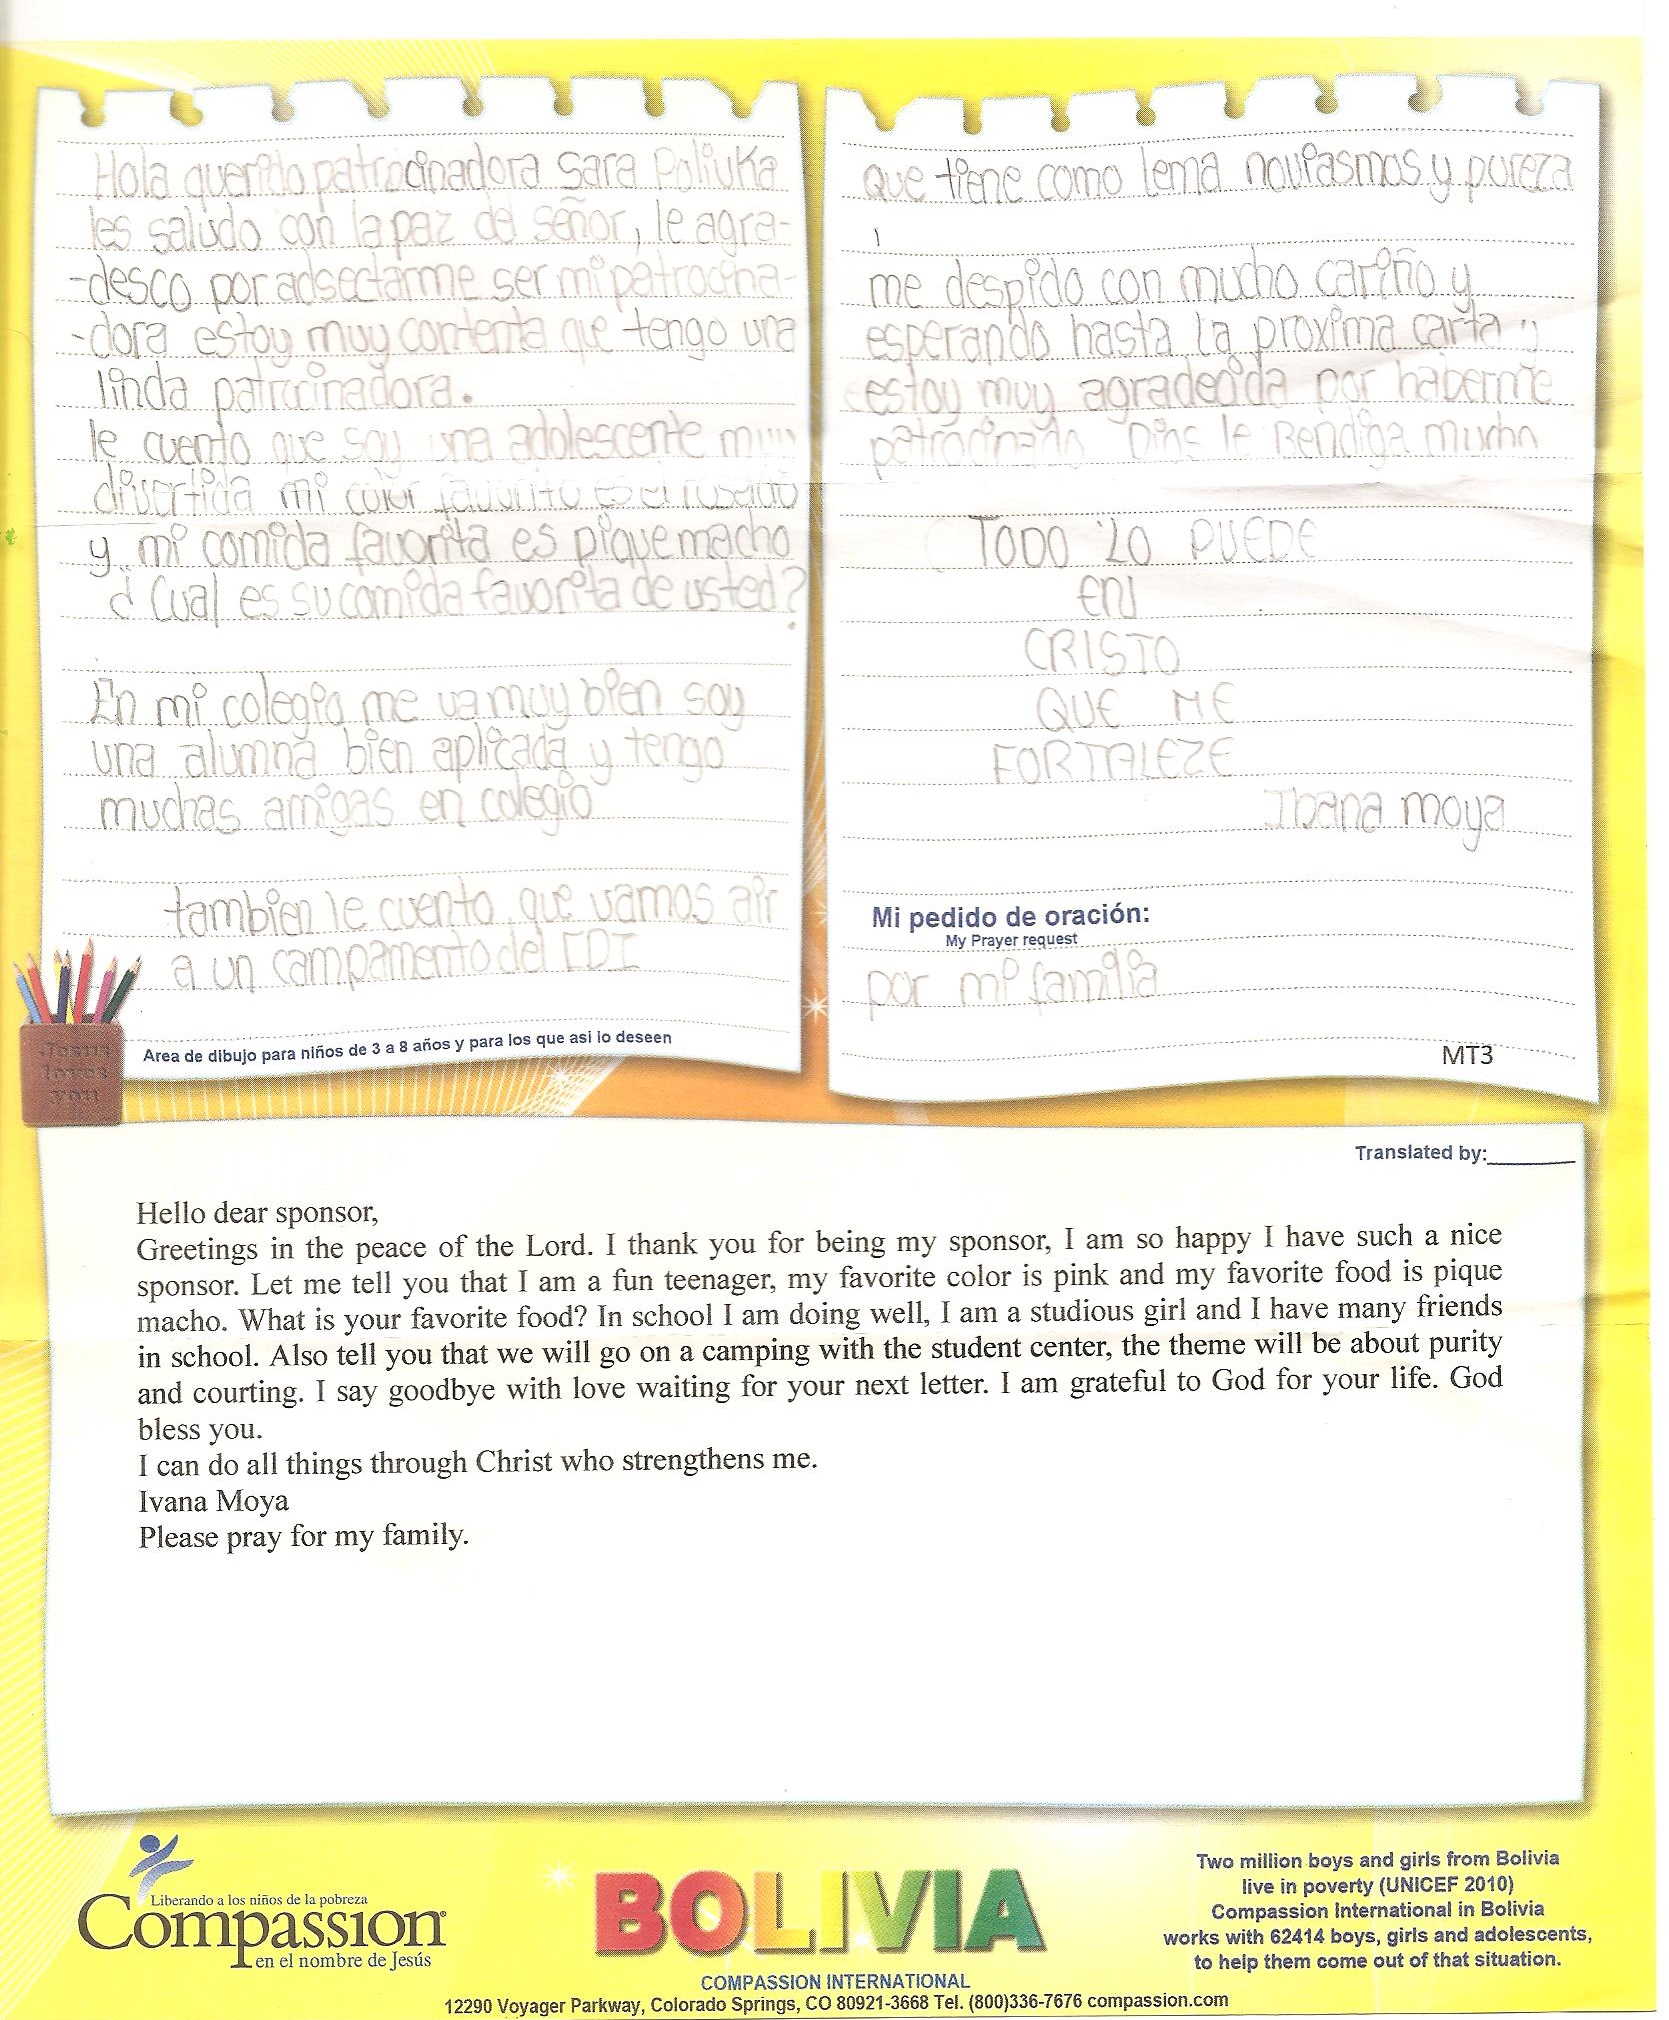 Hola querido patrocinadora Sara Poliuka
les saludo con la paz del Señor, le agra-
-desco por adsectarme ser mi patrocina-
-dora estoy muy contenta que tengo una
linda patrocinadora.
le cuento que soy una adolescente muy
divertida mi color favorito es el rosado
y mi comida favorita es pique macho
¿Cual es su comida favorita de usted?
En mi colegio me va muy bien soy
una alumna bien aplicada y tengo
muchas amigas en colegio
tambien le cuento que vamos air
a un campamento del CDI
Area de dibujo para niños de 3 a 8 años y para los que asi lo deseen
Jesus
loves
you
que tiene como lema noviasmos y pureza
me despido con mucho cariño y
esperando hasta la proxima carta y
estoy muy agradecida por haberme
patrocinado Dios le Bendiga mucho
TODO LO PUEDE
EN
CRISTO
QUE ME
FORTALEZE
Ibana moya
Mi pedido de oración:
My Prayer request
por mi familia
MT3
Translated by:________
Hello dear sponsor,
Greetings in the peace of the Lord. I thank you for being my sponsor, I am so happy I have such a nice
sponsor. Let me tell you that I am a fun teenager, my favorite color is pink and my favorite food is pique
macho. What is your favorite food? In school I am doing well, I am a studious girl and I have many friends
in school. Also tell you that we will go on a camping with the student center, the theme will be about purity
and courting. I say goodbye with love waiting for your next letter. I am grateful to God for your life. God
bless you.
I can do all things through Christ who strengthens me.
Ivana Moya
Please pray for my family.
Liberando a los niños de la pobreza
Compassion®
en el nombre de Jesús
BOLIVIA
COMPASSION INTERNATIONAL
12290 Voyager Parkway, Colorado Springs, CO 80921-3668 Tel. (800)336-7676 compassion.com
Two million boys and girls from Bolivia
live in poverty (UNICEF 2010)
Compassion International in Bolivia
works with 62414 boys, girls and adolescents,
to help them come out of that situation.